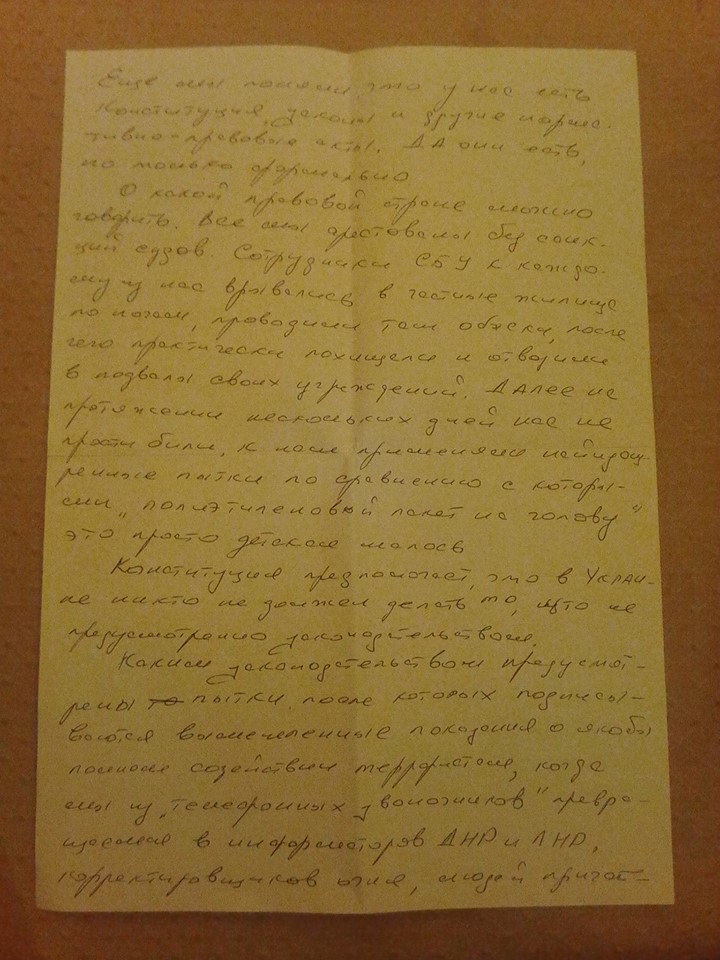 Еще мы помним что у нас есть
Конституция, законы и другие норма-
тивно-правовые акты. ДА они есть,
но только формально
О какой правовой стране можно
говорить. Все мы арестованы без санк-
ций судов. Сотрудники СБУ к каждо-
му из нас врывались в частные жилища
по ночам, проводили там обыски, после
чего практически похищали и отвозили
в подвалы своих учреждений. ДАЛее на
протяжении нескольких дней нас не
просто били, к нам применяли найизощ-
ренные пытки по сравнению с которы-
ми „полиэтиленовый пакет на голову"
это просто детская шалось
Конституция предпологает, что в Украи-
не никто не должен делать то, что не
предусмотренно законодательством.
Каким законодательством предусмот-
рены пытки после которых подписы-
ваются вымышленные показания о якобы
нашем содействии террористам, когда
мы из „телефонных звоночников" превра-
щаемся в информаторов ДНР и ЛНР,
корректировщиков огня, людей